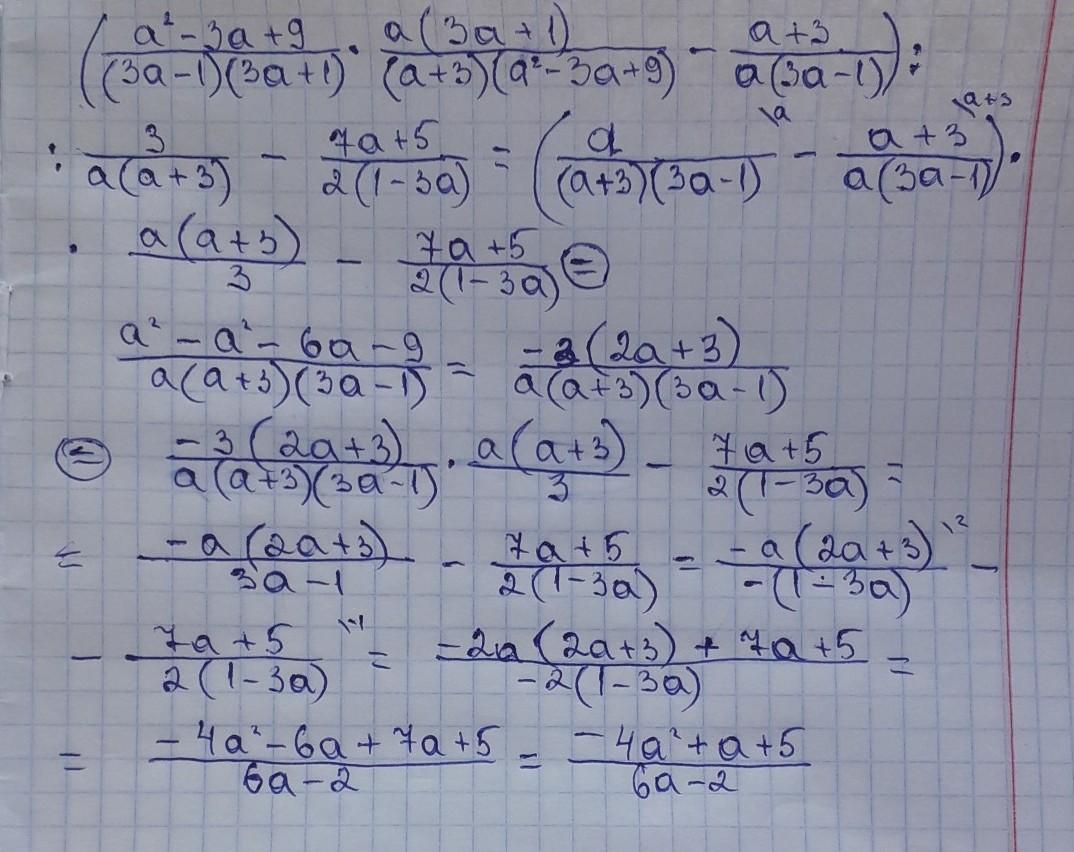 ((a² - 3a + 9)/((3a - 1)(3a + 1)) · (a(3a + 1))/((a + 3)(a² - 3a + 9)) - (a + 3)/(a(3a - 1))) :
: 3/(a(a + 3)) - (7a + 5)/(2(1 - 3a)) = (a/((a + 3)(3a - 1)) \a - (a + 3)/(a(3a - 1)) \a+3) ·
· (a(a + 3))/3 - (7a + 5)/(2(1 - 3a)) ⊜
(a² - a² - 6a - 9)/(a(a + 3)(3a - 1)) = (-3(2a + 3))/(a(a + 3)(3a - 1))
⊜ (-3(2a + 3))/(a(a + 3)(3a - 1)) · (a(a + 3))/3 - (7a + 5)/(2(1 - 3a)) =
= (-a(2a + 3))/(3a - 1) - (7a + 5)/(2(1 - 3a)) = (-a(2a + 3))/(-(1 - 3a)) \2 -
- (7a + 5)/(2(1 - 3a)) \-1 = (-2a(2a + 3) + 7a + 5)/(-2(1 - 3a)) =
= (-4a² - 6a + 7a + 5)/(6a - 2) = (-4a² + a + 5)/(6a - 2)